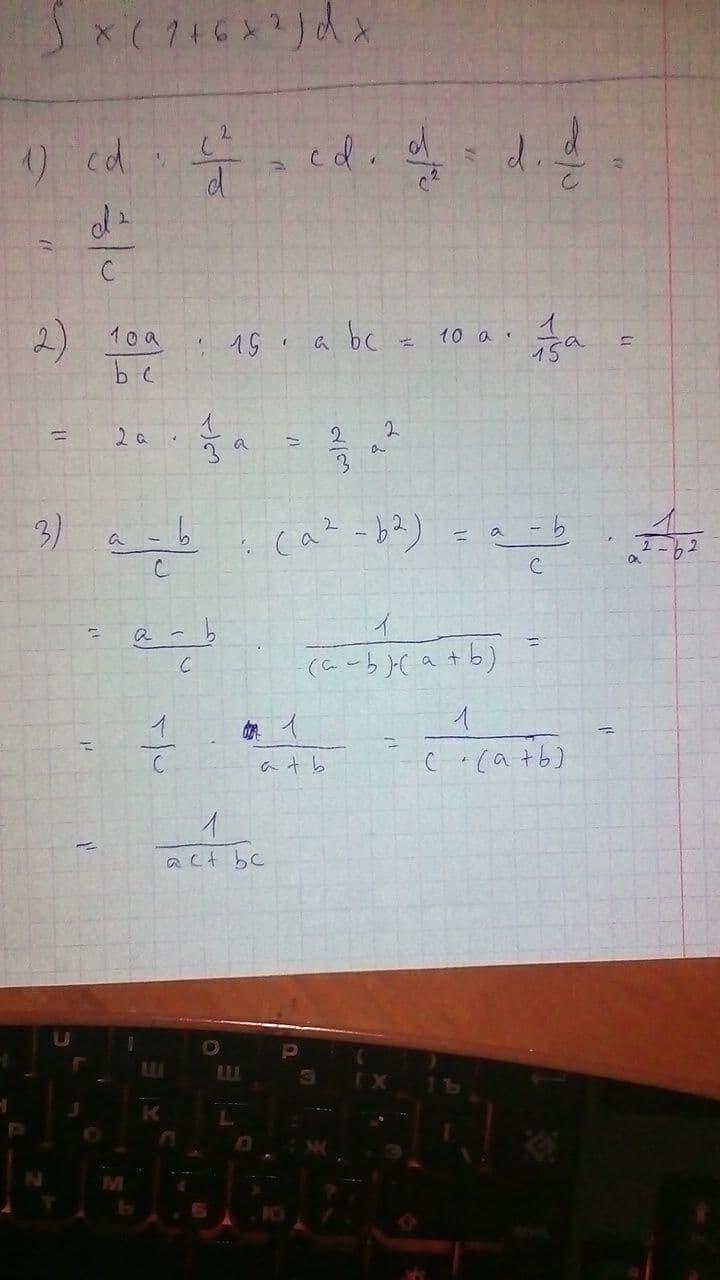 ∫ x(1+6x²)dx
1) cd : c²/d = cd · d/c² = d · d/c =
= d²/c
2) 10a/bc : 15 · abc = 10a · 1/15 a =
= 2a · 1/3 a = 2/3 a²
3) a-b/c : (a²-b²) = a-b/c · 1/a²-b²
= a-b/c · 1/(a-b)·(a+b) =
= 1/c · 1/a+b = 1/c·(a+b) =
= 1/ac+bc
U I O P { }
Г Ш Щ З [ Х ] Ъ
J K L : "
Р О Л Д ; Ж Э \
N M < > ?
Т Ь , Б . Ю /